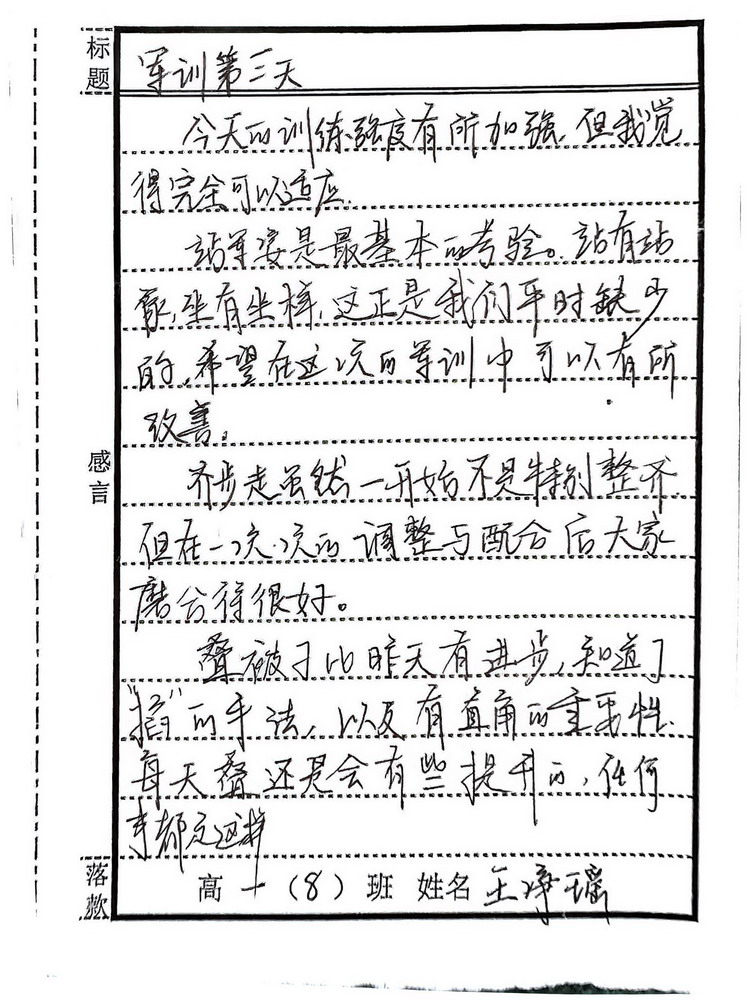 标题
军训第三天
今天的训练强度有所加强,但我觉
得完全可以适应.
站军姿是最基本的考验。站有站
像,坐有坐样,这正是我们平时缺少
的,希望在这次的军训中可以有所
改善。
感言
齐步走虽然一开始不是特别整齐,
但在一次次的调整与配合后大家
磨合得很好。
叠被子比昨天有进步,知道了
的手法,以及有直角的重要性.
每天叠还是会有些提升的,任何
事都是这样
落款
高一(8)班 姓名 王瑶